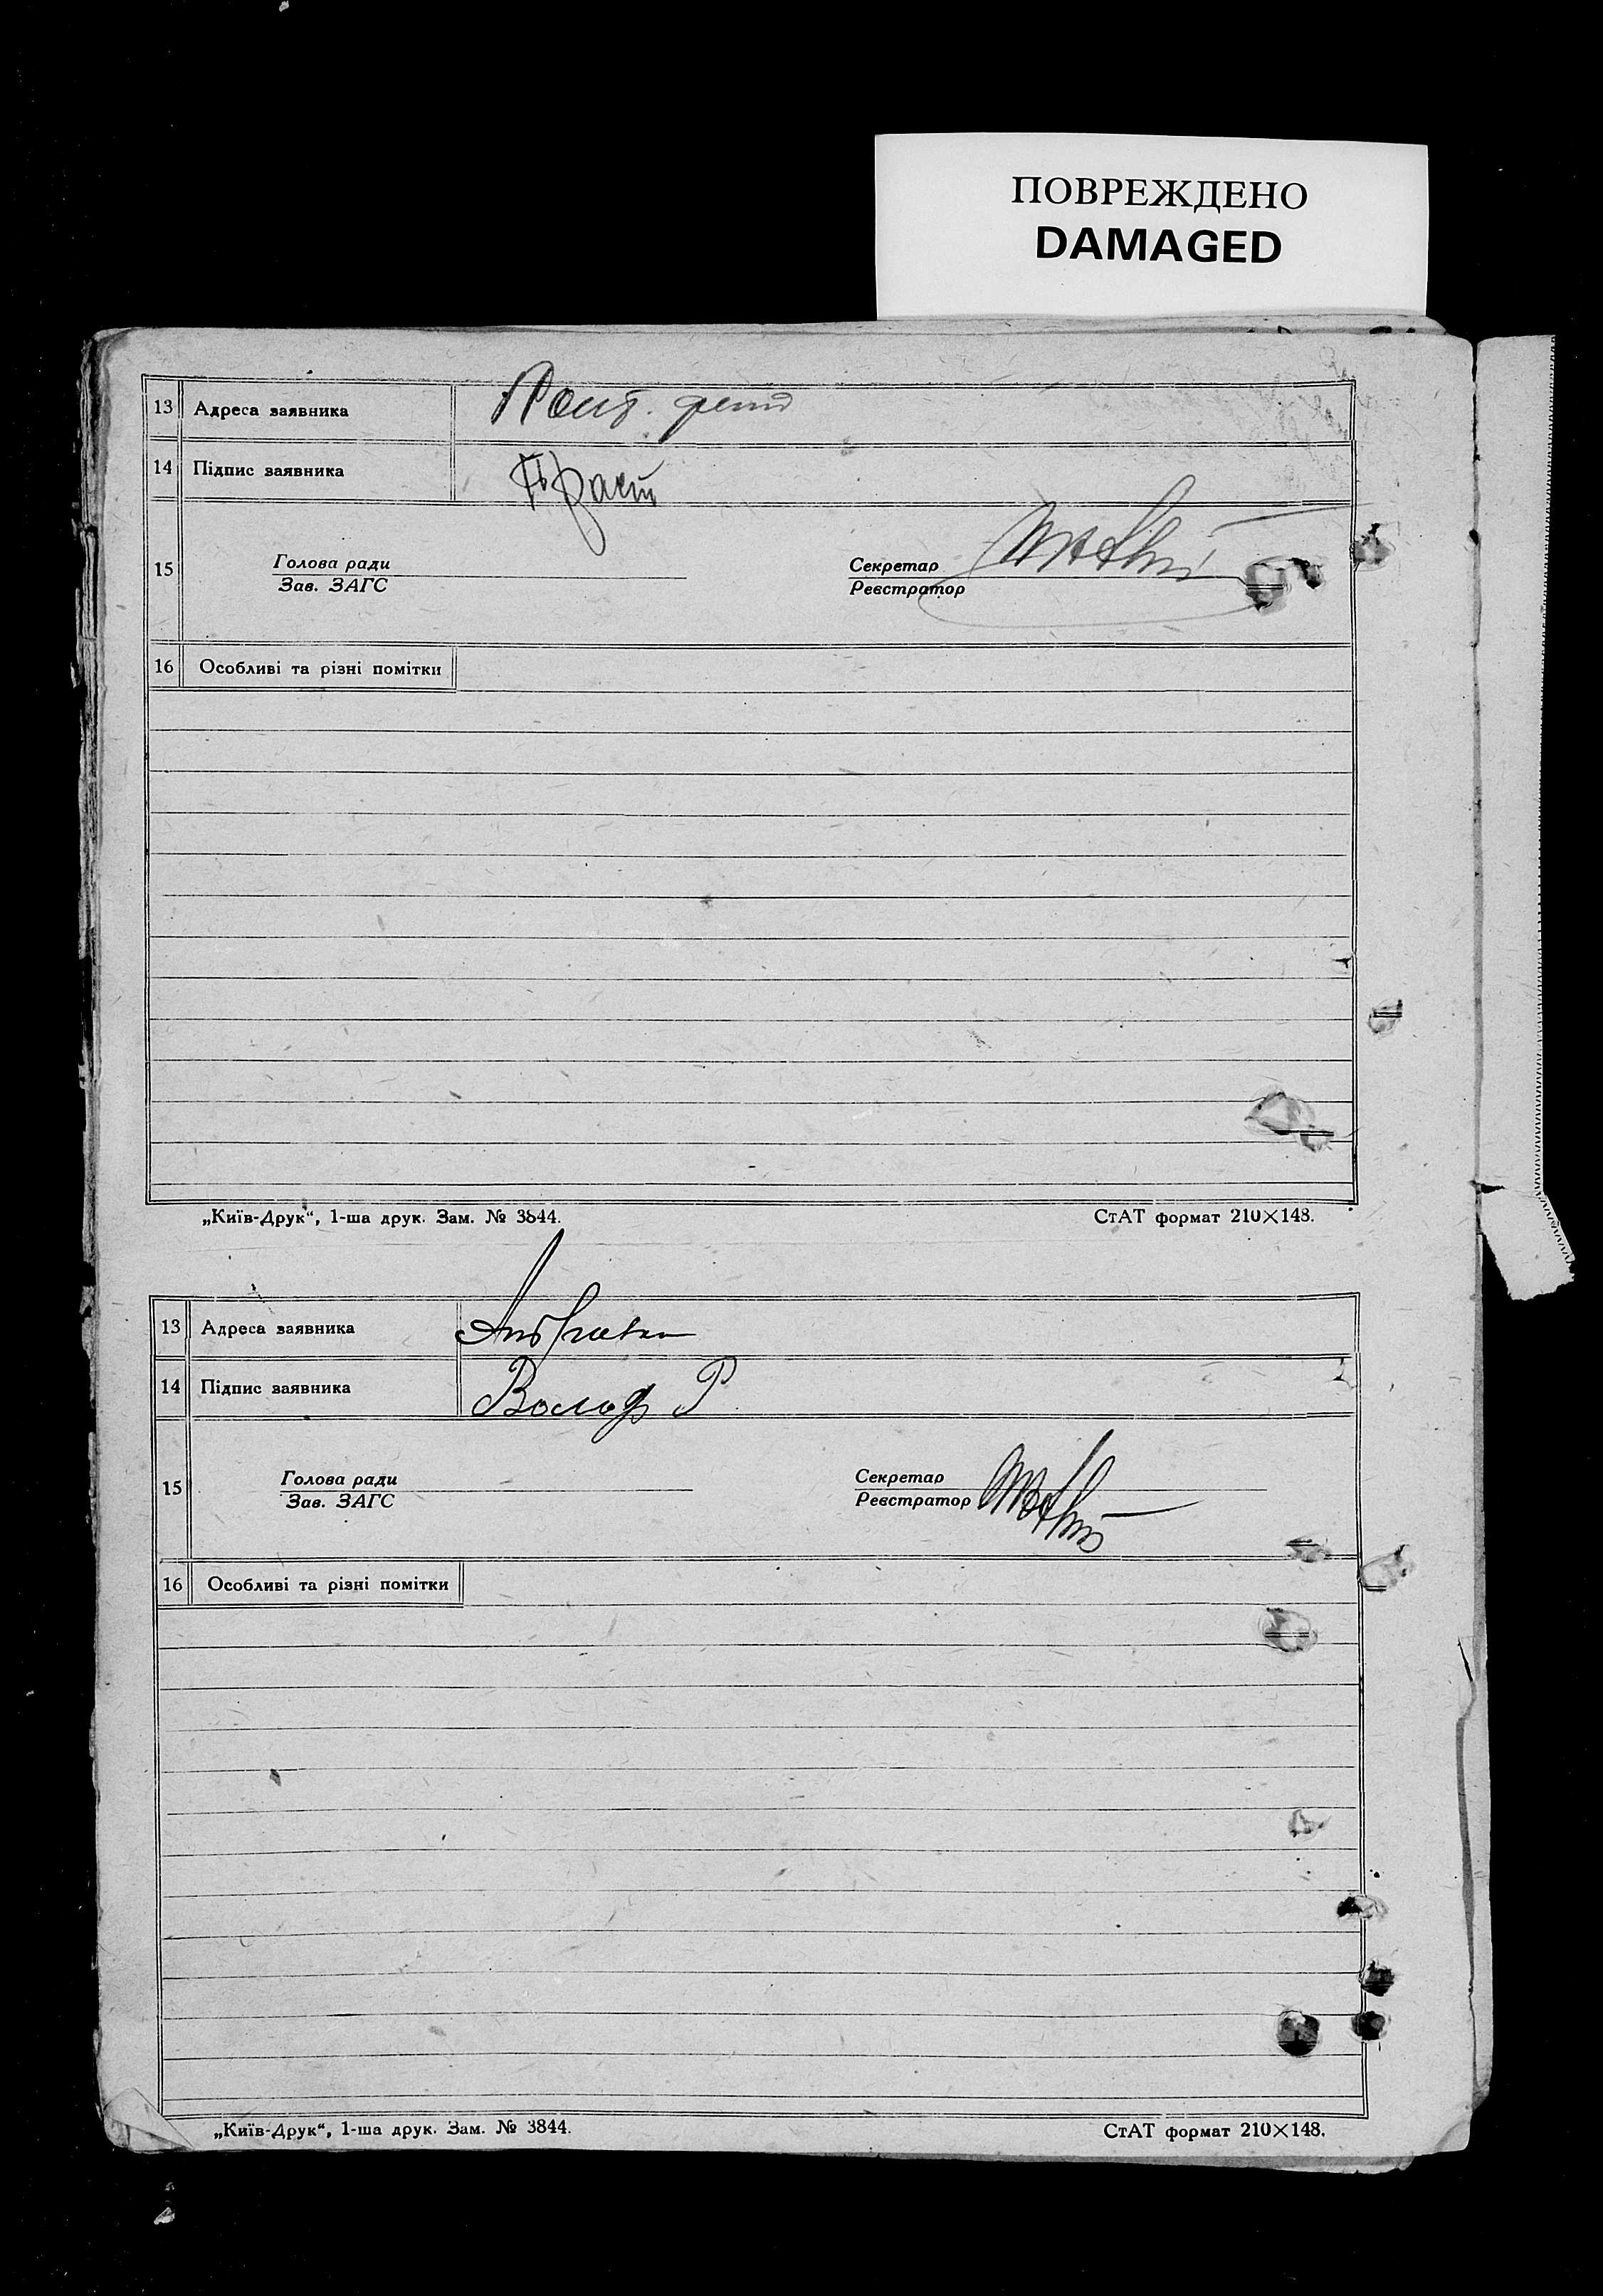 ПОВРЕЖДЕНО
DAMAGED
13 Адреса заявника
14 Підпис заявника
15 Голова ради
Зав. ЗАГС
Секретар
Реєстратор
16 Особливі та різні помітки
„Київ-Друк“, 1-ша друк. Зам. № 3844. СтАТ формат 210×148.
13 Адреса заявника
14 Підпис заявника Вольф Р
15 Голова ради
Зав. ЗАГС
Секретар
Реєстратор
16 Особливі та різні помітки
„Київ-Друк“, 1-ша друк. Зам. № 3844. СтАТ формат 210×148.